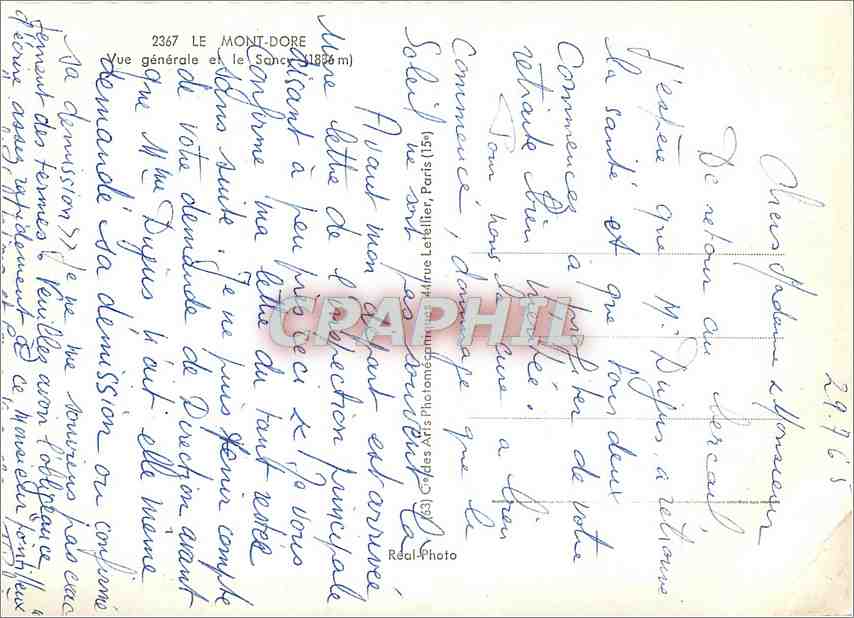 2367 LE MONT-DORE
Vue générale et le Sancy (1886 m)
(63) Cie des Arts Photomécaniques, 44 rue Letellier, Paris (15e)
Réal-Photo
CPAPHIL
29.7.65
Chers Madame & Monsieur
De retour au bercail,
j'espère que M. Dujus a retrouvé
la santé et que tous deux
commencez à profiter de votre
retraite bien méritée.
Pour nous la cure a bien
commencé, dommage que le
Soleil ne soit pas souvent là
Avant mon départ est arrivée
une lettre de l'Inspection principale
disant à peu près ceci « Je vous
confirme ma lettre du tant restée
sans suite. Je ne puis tenir compte
de votre demande de Direction avant
que Mme Dujus n'ait elle même
demandé sa démission ou confirmé
sa démission >> Je ne me souviens pas exac
tement des termes. Veuillez avoir l'obligeance
d'écrire assez rapidement à ce Monsieur